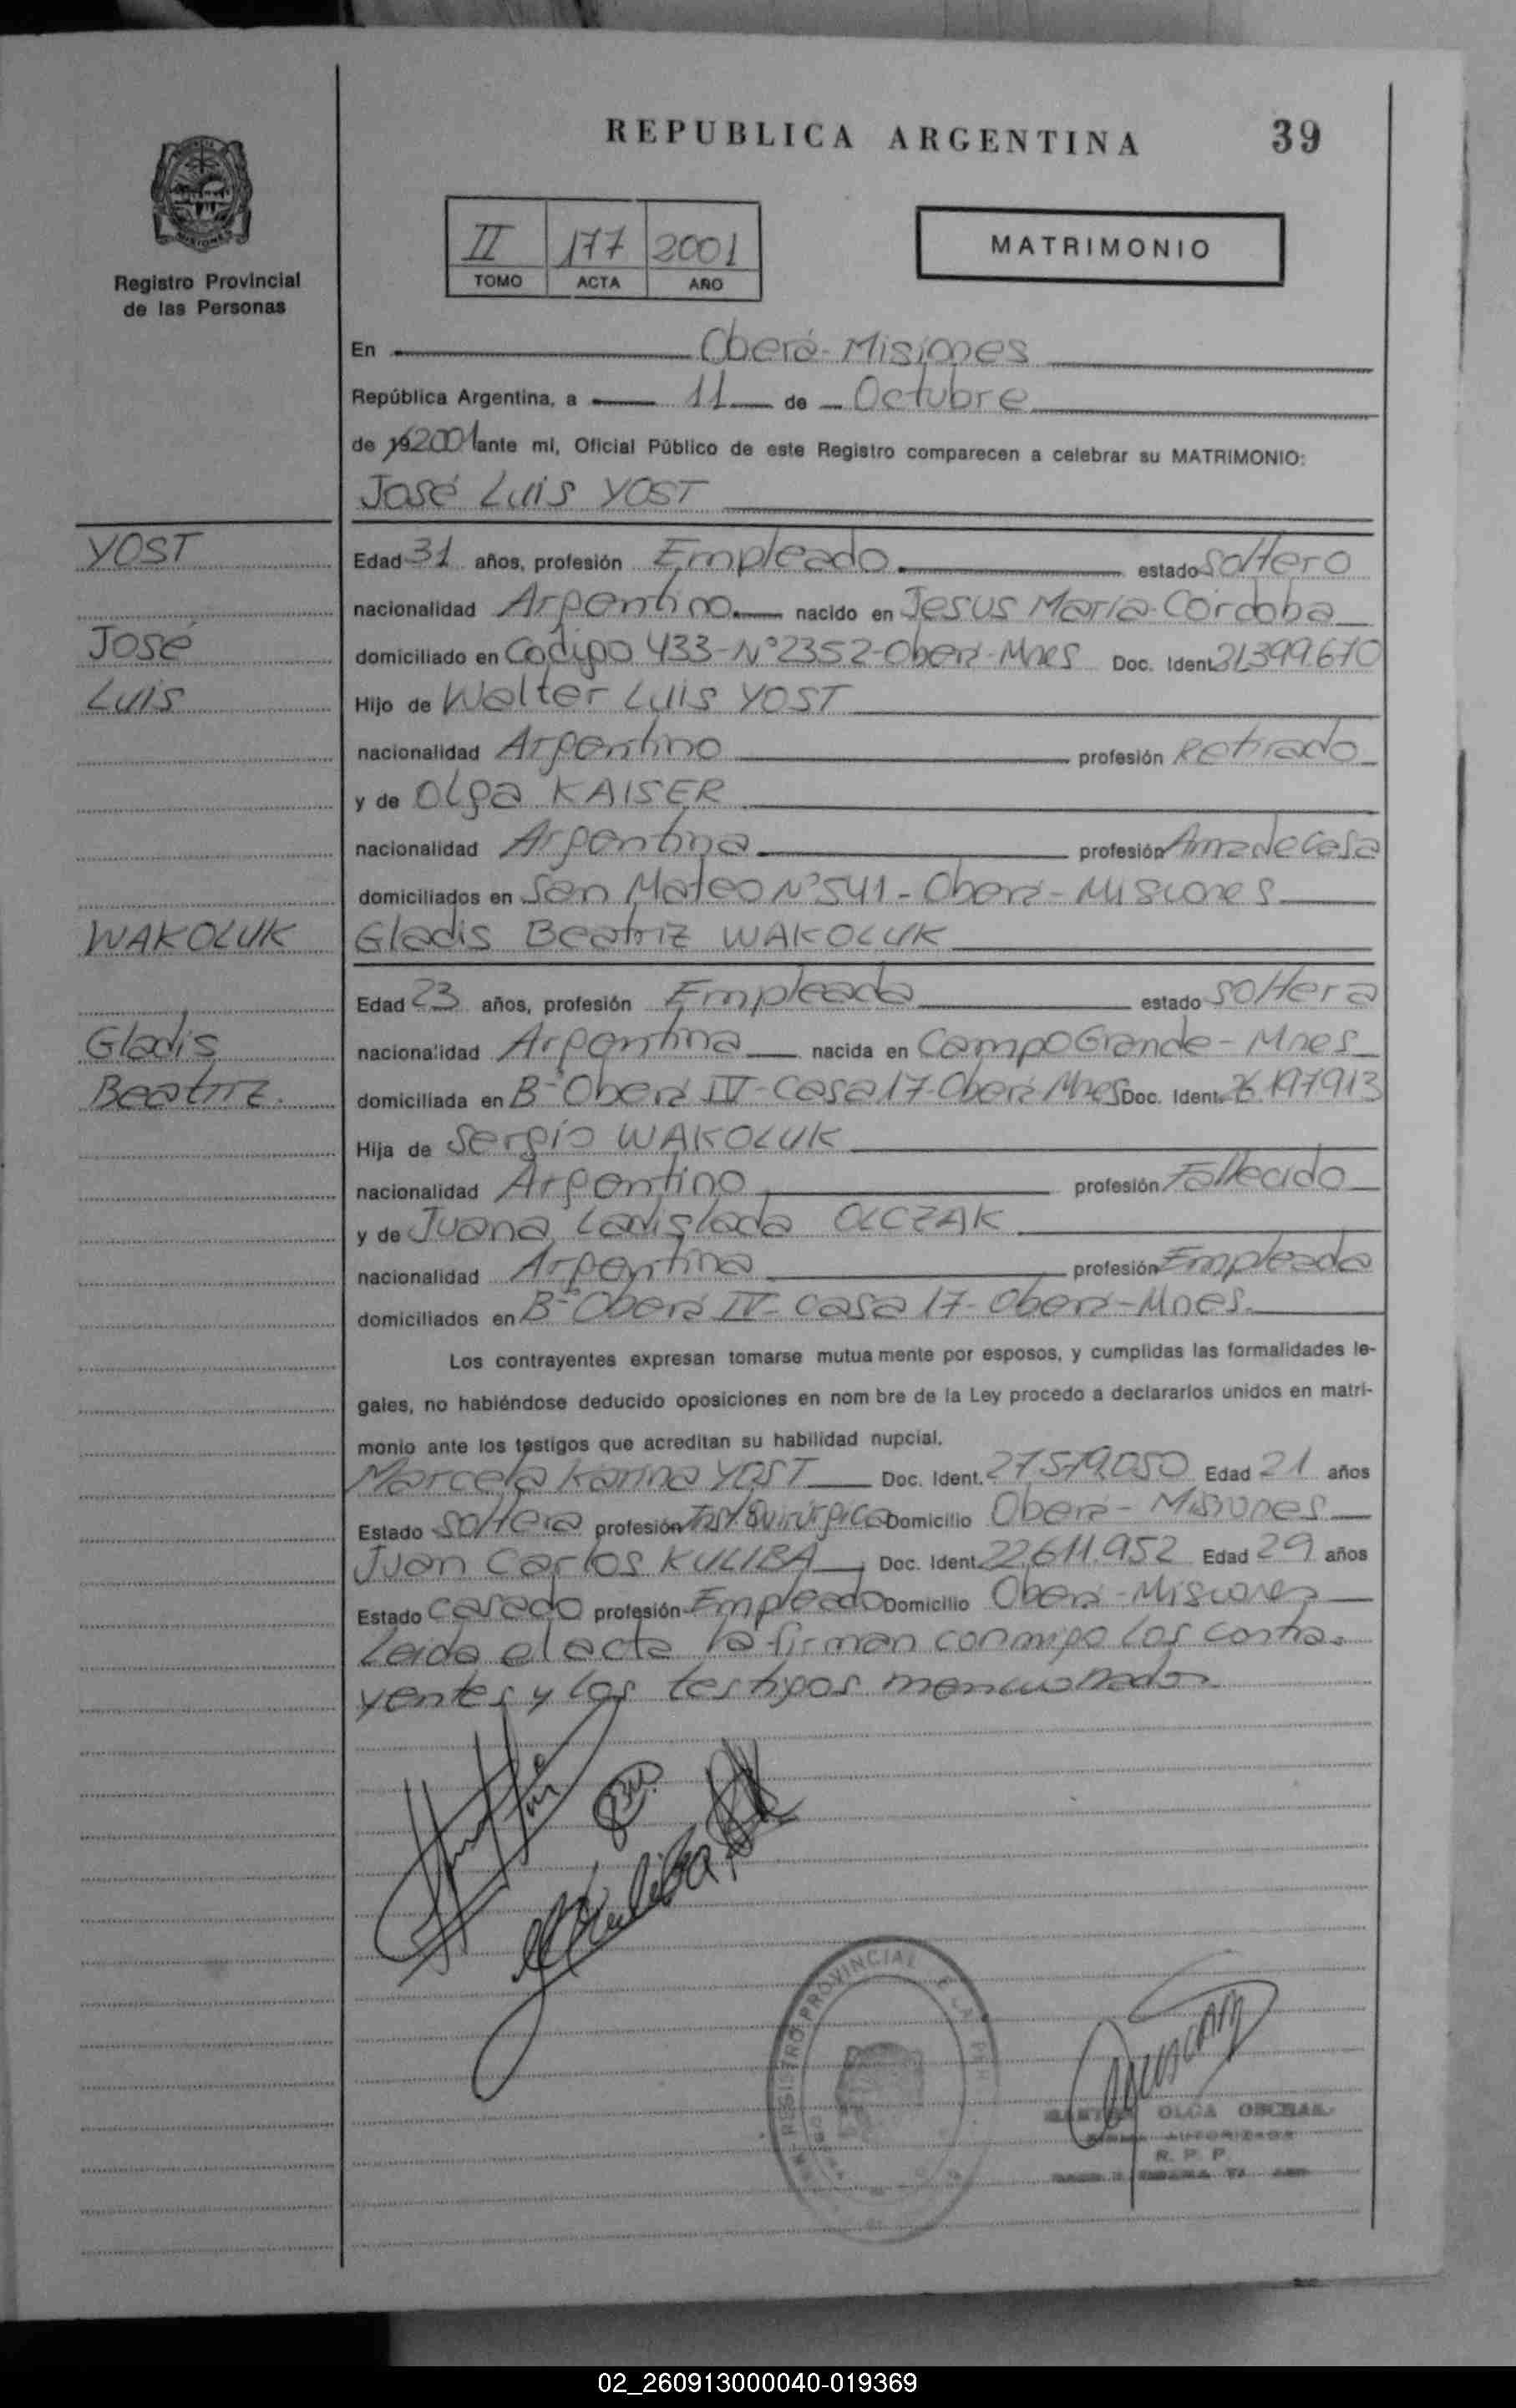 REPUBLICA ARGENTINA 39
MISIONES
Registro Provincial
de las Personas
II 177 2001
TOMO ACTA AÑO
MATRIMONIO
En Oberá - Misiones
República Argentina, a 11 de Octubre
de 19 2001 ante mi, Oficial Público de este Registro comparecen a celebrar su MATRIMONIO:
José Luis YOST
YOST
Edad 31 años, profesión Empleado estado soltero
nacionalidad Argentino nacido en Jesus Maria - Córdoba
José
domiciliado en Codigo 433 - Nº 2352 - Oberá - Mnes Doc. Ident. 21.399.670
Luis
Hijo de Walter Luis YOST
nacionalidad Argentino profesión Retirado
y de Olga KAISER
nacionalidad Argentina profesión Ama de casa
domiciliados en San Mateo Nº 541 - Oberá - Misiones
WAKOLUK
Gladis Beatriz WAKOLUK
Edad 23 años, profesión Empleada estado soltera
Gladis
nacionalidad Argentina nacida en Campo Grande - Mnes
Beatriz.
domiciliada en Bº Oberá IV - Casa 17 - Oberá Mnes Doc. Ident. 26.197.913
Hija de Sergio WAKOLUK
nacionalidad Argentino profesión Fallecido
y de Juana Ladislada OLCZAK
nacionalidad Argentina profesión Empleada
domiciliados en Bº Oberá IV - Casa 17 - Oberá - Mnes.
Los contrayentes expresan tomarse mutua mente por esposos, y cumplidas las formalidades le-
gales, no habiéndose deducido oposiciones en nom bre de la Ley procedo a declararlos unidos en matri-
monio ante los testigos que acreditan su habilidad nupcial.
Marcela Karina YOST Doc. Ident. 27.579.050 Edad 21 años
Estado Soltera profesión Inst. Quirúrgica Domicilio Oberá - Misiones
Juan Carlos KULIBA Doc. Ident. 22.611.952 Edad 29 años
Estado Casado profesión Empleado Domicilio Oberá - Misiones
Leida el acta la firman conmigo los contra-
yentes y los testigos mencionados
REGISTRO PROVINCIAL
OLGA
AUTORIZADA
R. P. P.
02_260913000040-019369